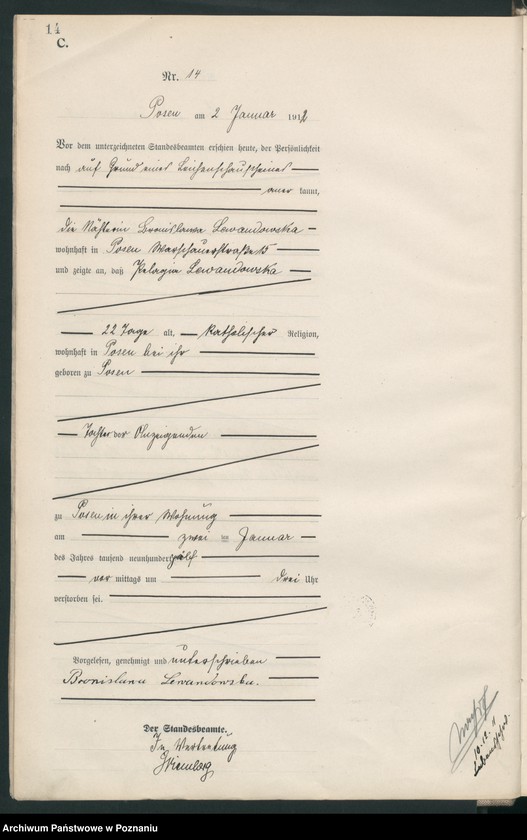 14
C.
Nr. 14
Posen am 2 Januar 1912
Vor dem unterzeichneten Standesbeamten erschien heute, der Persönlichkeit
nach auf Grund eines Leichenschauscheines
aner kannt,
die Nähterin Bronislawa Lewandowska
wohnhaft in Posen Warschauerstraße 15
und zeigte an, daß Pelagia Lewandowska
22 Tage alt, katholischer Religion,
wohnhaft in Posen bei ihr
geboren zu Posen
Tochter der Anzeigenden
zu Posen in ihrer Wohnung
am zwei ten Januar
des Jahres tausend neunhundert zwölf
vor mittags um drei Uhr
verstorben sei.
Vorgelesen, genehmigt und unterschrieben
Bronisława Lewandowska.
Der Standesbeamte.
In Vertretung
Archiwum Państwowe w Poznaniu